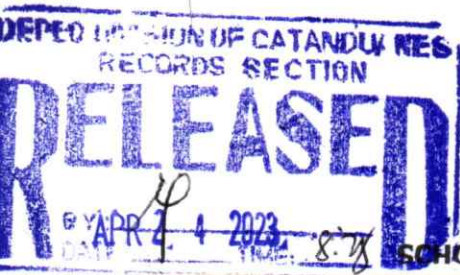 DEPED DIVISION OF CATANDUANES
RECORDS SECTION
RELEASED
BY
APR 24 2023
DATE TIME
SCHO